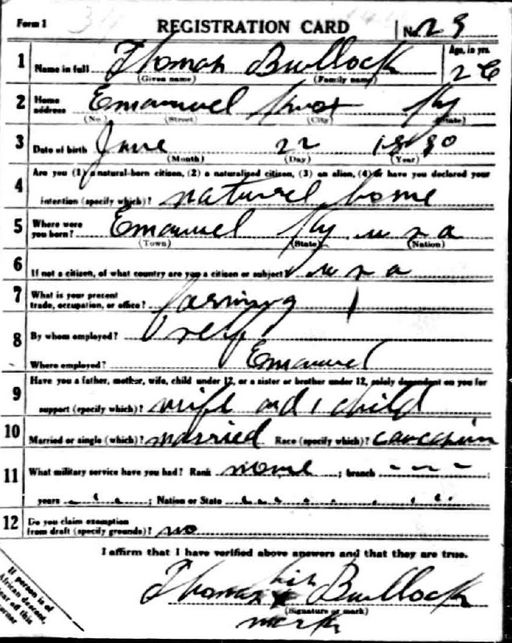 Form 1 REGISTRATION CARD No. 29
1 Name in full Thomas Bullock Age, in yrs. 26
(Given name) (Family name)
2 Home address Emanuel Knox Ky
(No.) (Street) (City) (State)
3 Date of birth June 22
(Month) (Day) (Year)
4 Are you (1) a natural-born citizen, (2) a naturalized citizen, (3) an alien, (4) or have you declared your
intention (specify which)? natural borne
5 Where were you born? Emanuel Ky u s a
(Town) (State) (Nation)
6 If not a citizen, of what country are you a citizen or subject? u s a
7 What is your present trade, occupation, or office? farming
8 By whom employed? self
Where employed? Emanuel
9 Have you a father, mother, wife, child under 12, or a sister or brother under 12, solely dependent on you for
support (specify which)? wife and 1 child
10 Married or single (which)? married Race (specify which)?
11 What military service have you had? Rank none ; branch - - - - ;
years ; Nation or State
12 Do you claim exemption from draft (specify grounds)? no
I affirm that I have verified above answers and that they are true.
Thomas his x Bullock
(Signature or mark)
mark
If person is of
African descent,
tear off this
corner